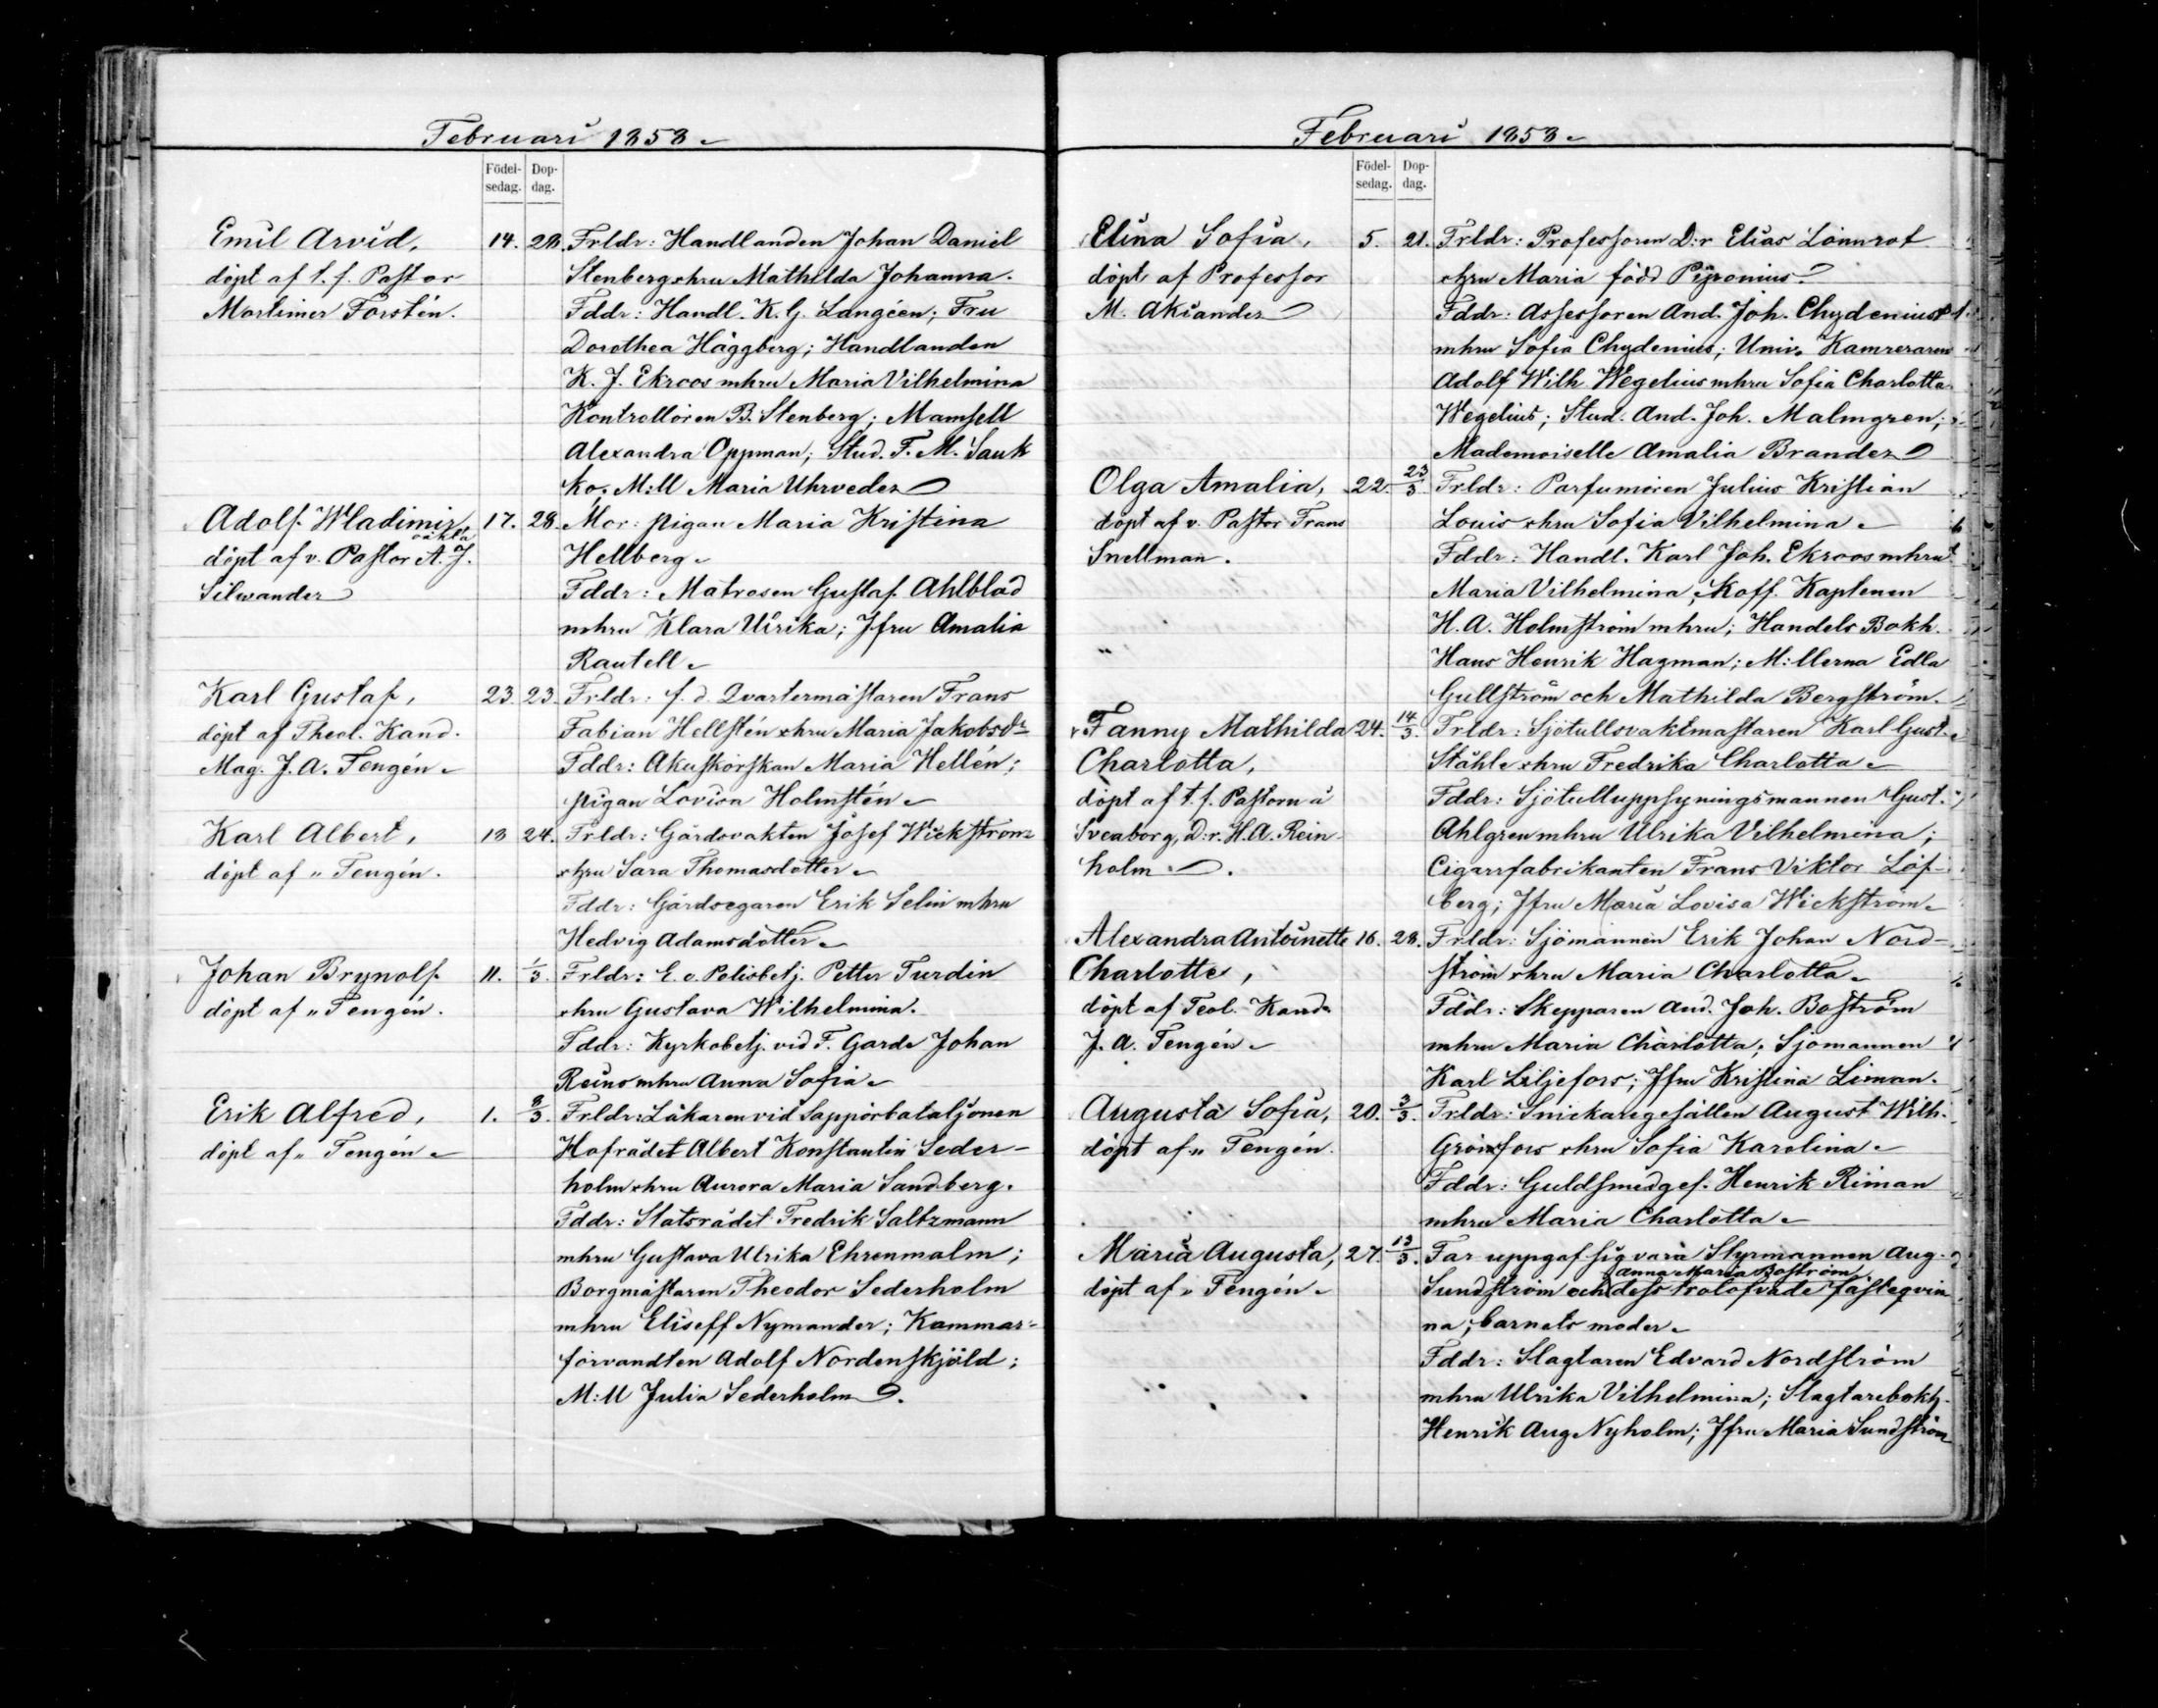 Februari 1858
Födel-
sedag.
Dop-
dag.
Emil Arvid, 14. 28. Frldr: Handlanden Johan Daniel
döpt af t. f. Pastor Stenberg o hru Mathilda Johanna.
Mortimer Forstén. Fddr: Handl. K. G. Langéen; Fru
Dorothea Häggberg; Handlanden
K. J. Ekroos mhru Maria Vilhelmina
Kontrollören B. Stenberg; Mamsell
Alexandra Oppman; Stud. F. M. Sauk
ko; M:ll Maria Uhrveder
Adolf Wladimir, oäkta 17. 28. Mor: pigan Maria Kristina
döpt af v. Pastor A. J. Hellberg
Silwander Fddr: Matrosen Gustaf Ahlblad
mhru Klara Ulrika; Jfru Amalia
Rautell
Karl Gustaf, 23. 23. Frldr: f. d. Qvartermästaren Frans
döpt af Theol. Kand. Fabian Hellstén o hru Maria Jakobsdr
Mag. J. A. Tengén Fddr: Akuskörskan Maria Hellén;
pigan Lovisa Holmstén
Karl Albert, 13 24. Frldr: Gårdsvakten Josef Wickström
döpt af " Tengén. o hru Sara Thomasdotter
Fddr: Gårdsegaren Erik Selin mhru
Hedvig Adamsdotter
Johan Brynolf 11. 1/3. Frldr: E. o. Polisbetj. Petter Turdin
döpt af " Tengén. o hru Gustava Wilhelmina.
Fddr: Kyrkobetj. vid F. Garde Johan
Reins mhru Anna Sofia
Erik Alfred, 1. 8/3. Frldr: Läkaren vid Sappörbataljonen
döpt af " Tengén Hofrådet Albert Konstantin Seder-
holm o hru Aurora Maria Sandberg.
Fddr: Statsrådet Fredrik Saltzmann
mhru Gustava Ulrika Ehrenmalm;
Borgmästaren Theodor Sederholm
mhru Eliseff Nymander; Kammar-
förvandten Adolf Nordenskjöld;
M:ll Julia Sederholm.
Februari 1858
Födel-
sedag.
Dop-
dag.
Elina Sofia, 5. 21. Frldr: Professoren D:r Elias Lönnrot
döpt af Professor o hru Maria född Piponius.
M. Akiander Fddr: Assessoren And. Joh. Chydenius
mhru Sofia Chydenius; Univ. Kamreraren
Adolf Wilh Wegelius mhru Sofia Charlotta
Wegelius; Stud. And. Joh. Malmgren;
Mademoiselle Amalia Brander
Olga Amalia, 22. 23/3. Frldr: Parfumören Julius Kristian
döpt af v. Pastor Frans Louis o hru Sofia Vilhelmina
Snellman. Fddr: Handl. Karl Joh. Ekroos mhru
Maria Vilhelmina; Koff. Kaptenen
H. A. Holmström mhru; Handels Bokh.
Hans Henrik Hagman; M:llerna Edla
Gullström och Mathilda Bergström.
Fanny Mathilda 24. 14/3. Frldr: Sjötullsvaktmästaren Karl Gust.
Charlotta, Ståhle o hru Fredrika Charlotta
döpt af t. f. Pastorn å Fddr: Sjötulluppsyningsmannen Gust.
Sveaborg, D:r. H. A. Rein- Ahlgren mhru Ulrika Vilhelmina;
holm. Cigarrfabrikanten Frans Viktor Löf-
berg; Jfru Maria Lovisa Wickström
Alexandra Antoinette 16. 28. Frldr: Sjömannen Erik Johan Nord-
Charlotte, ström o hru Maria Charlotta
döpt af Teol. Kand. Fddr: Skepparen And. Joh. Boström
J. A. Tengén mhru Maria Charlotta; Sjömannen
Karl Liljefors; Jfru Kristina Liman.
Augusta Sofia, 20. 3/3. Frldr: Snickaregesällen August Wilh.
döpt af " Tengén. Grönfors o hru Sofia Karolina
Fddr: Guldsmedges. Henrik Riman
mhru Maria Charlotta
Maria Augusta, 27. 13/3. Far uppgaf sig vara Styrmannen Aug.
Anna Maria Boström
döpt af " Tengén Sundström och dess trolofvade fästeqvin
na, barnets moder
Fddr: Slagtaren Edvard Nordström
mhru Ulrika Vilhelmina; Slagtarebokh.
Henrik Aug Nyholm; Jfru Maria Sundström